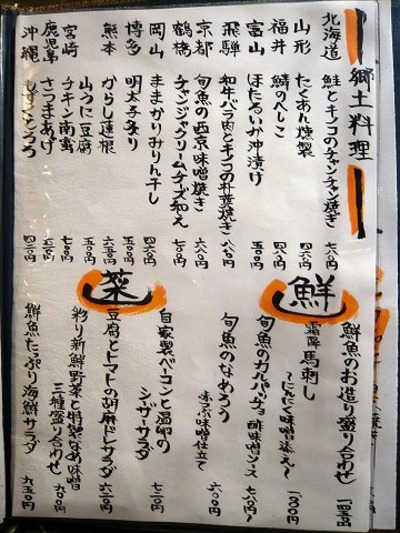 郷土料理
北海道 鮭とキノコのチャンチャン焼き 七八〇円
山形 たくあん燻製 四六〇円
福井 鯖のへしこ 四八〇円
富山 ほたるいか沖漬け 五〇〇円
飛騨 和牛バラ肉とキノコの朴葉焼き 八八〇円
京都 旬魚の西京味噌焼き 六八〇円
鶴橋 チャンジャクリームチーズ和え 七〇〇円
岡山 ままかりみりん干し 四六〇円
博多 明太子炙り 五五〇円
熊本 からし蓮根 六五〇円
山うに豆腐 五〇〇円
宮崎 チキン南蛮 七〇〇円
鹿児島 さつまあげ 六五〇円
沖縄 もずくとろろ 四二〇円
鮮
鮮魚のお造り盛り合わせ 一四五〇円
霜降馬刺し
〜にんにく味噌添え〜 一〇〇〇円
旬魚のカルパッチョ 酢味噌ソース 七八〇円
旬魚のなめろう
赤ぶ味噌仕立て 六〇〇円
菜
自家製ベーコンと温卵の
シーザーサラダ 七三〇円
豆腐とトマトの胡麻ドレサラダ 六二〇円
彩り新鮮野菜と特製なめ味噌
三種盛り合わせ 九〇〇円
鮮魚たっぷり海鮮サラダ 九五〇円